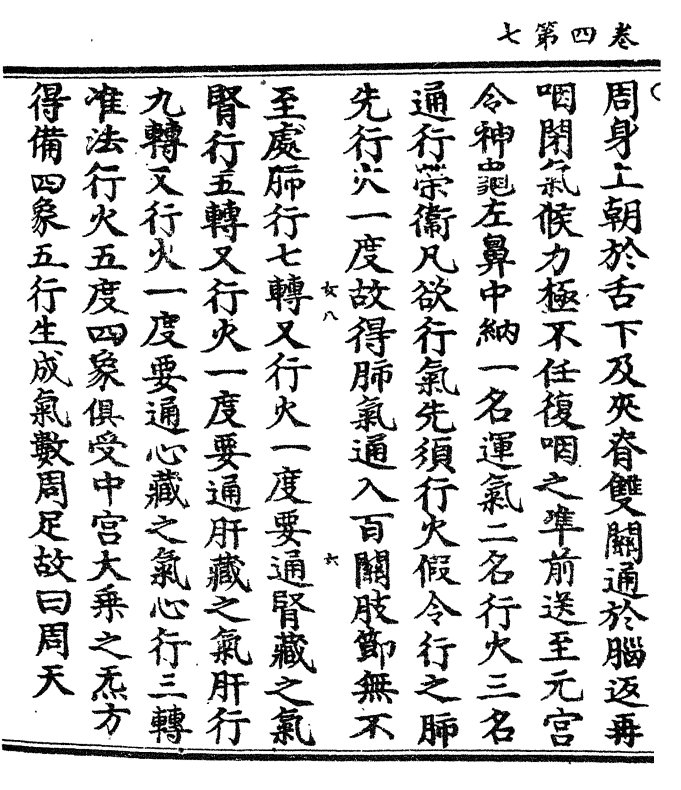 卷四第七
周身上朝於舌下及夾脊雙關通於腦返再
咽閉氣候力極不任復咽之準前送至元宮
令神龜左鼻中納一名運氣二名行火三名
通行榮衞凡欲行氣先須行火假令行之肺
先行火一度故得肺氣通入百關肢節無不
女八
六
至處肺行七轉又行火一度要通腎藏之氣
腎行五轉又行火一度要通肝藏之氣肝行
九轉又行火一度要通心藏之氣心行三轉
准法行火五度四象俱受中宮大乗之炁方
得備四象五行生成氣數周足故曰周天